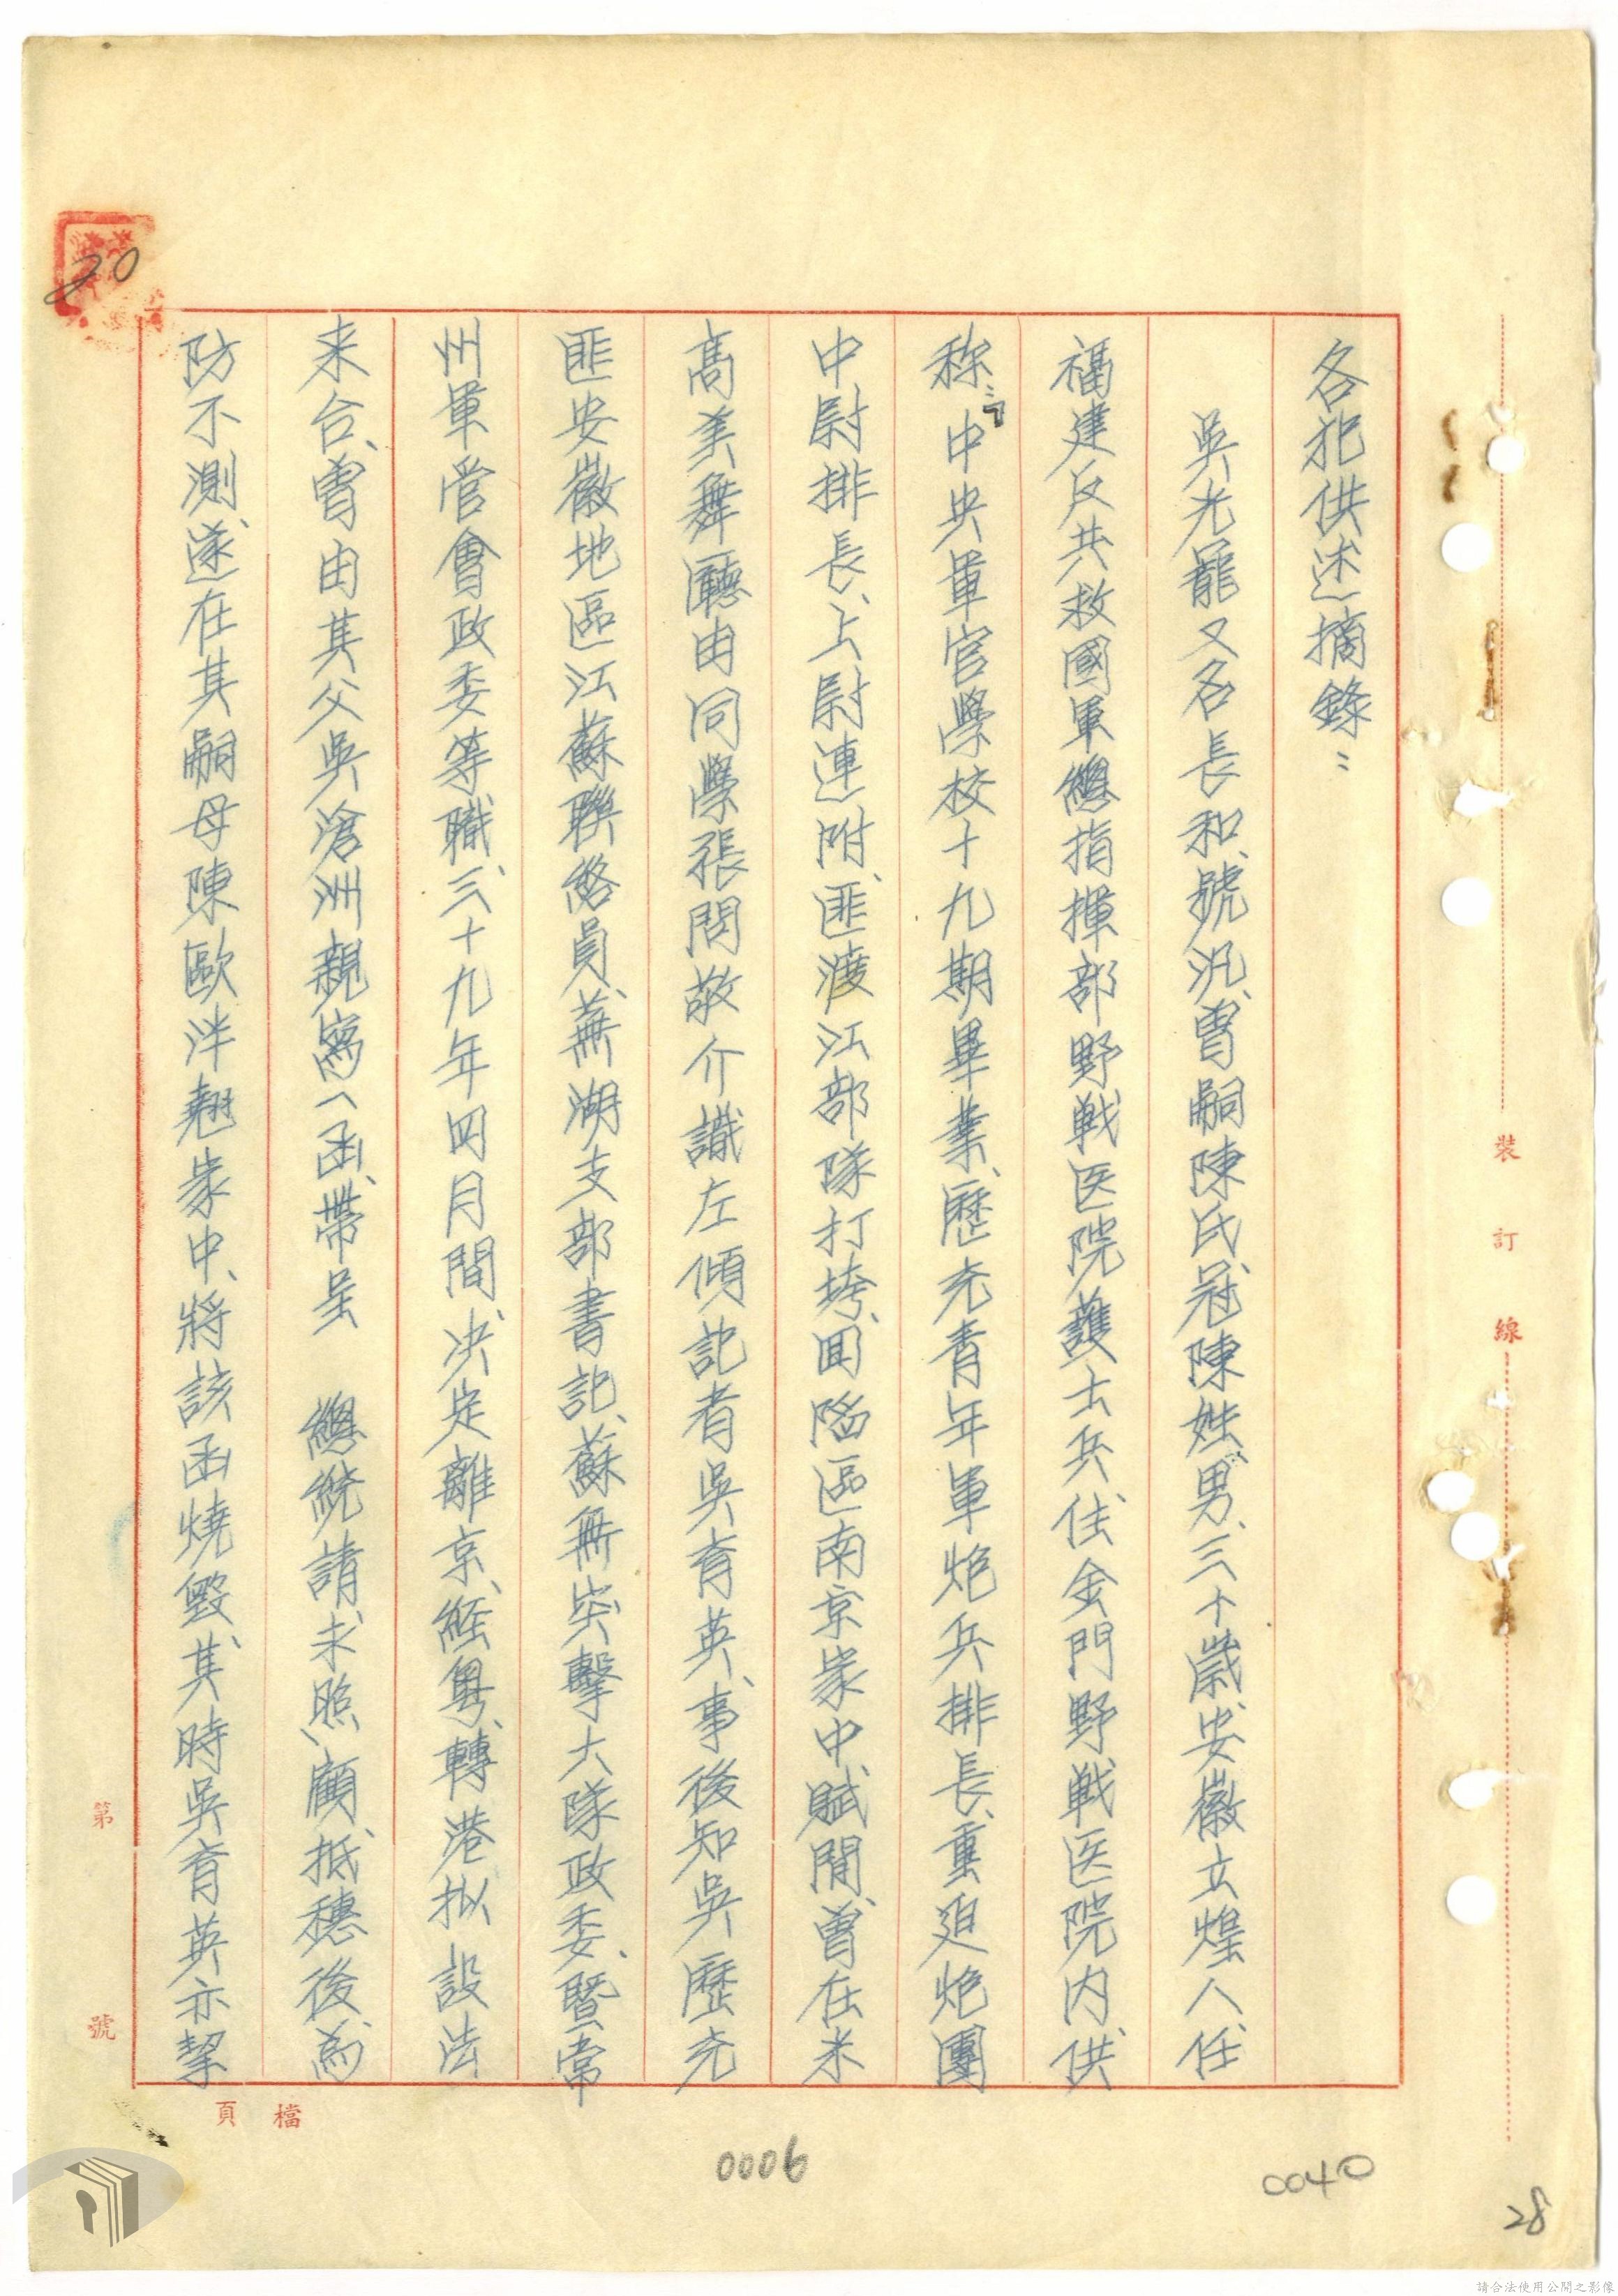 各犯供述摘錄：
吳光罷又名長和、號汎、曾嗣陳氏冠陳姓、男、三十歲、安徽立煌人、任
福建反共救國軍總指揮部野戰医院護士兵、住金門野戰医院内、供
称：「中央軍官學校十九期畢業、歷充青年軍炮兵排長、重迫炮團
中尉排長、上尉連附、匪渡江部隊打垮、囬陷區南京家中、賦閒、曾在米
高美舞廳由同學張問敬介識左傾記者吳育英、事後知吳歷充
匪安徽地區江蘇聯絡員、蕪湖支部書記、蘇無突擊大隊政委、暨常
州軍管會政委等職、三十九年四月間决定離京、經粤、轉港拟設法
来台、曾由其父吳滄洲親寫一函、帶呈　總統請求照顧、抵穗後、為
防不測、遂在其嗣母陳歐泮翹家中、將該函燒毀、其時吳育英亦挈
裝
訂
線
第
號
檔
頁
20
0006
0040
28
請合法使用公開之影像